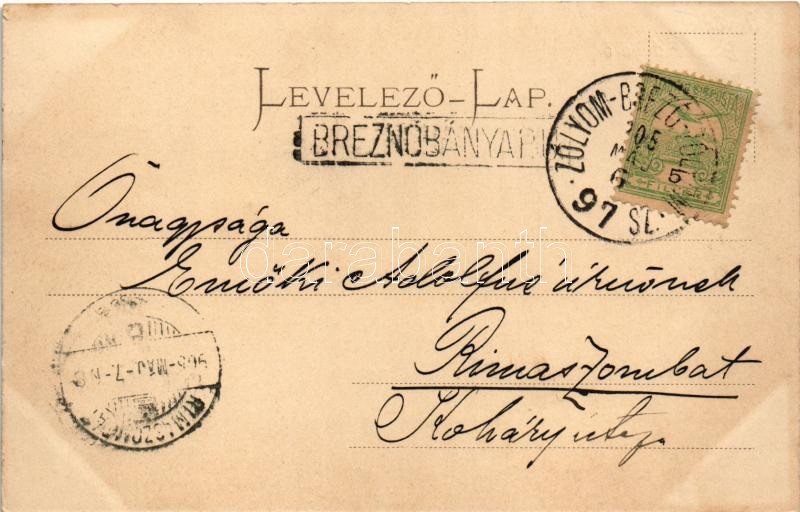 LEVELEZŐ-LAP.
BREZNÓBÁNYA
ZÓLYOM-BREZÓ
905 MÁJ 6
97 SZ.
5
FILLÉR
Őnagysága
Emőki Adolfné úrnőnek
Rimaszombat
Koháry utcza
905 MÁJ. 7.
RIMASZOMBAT
darabanth